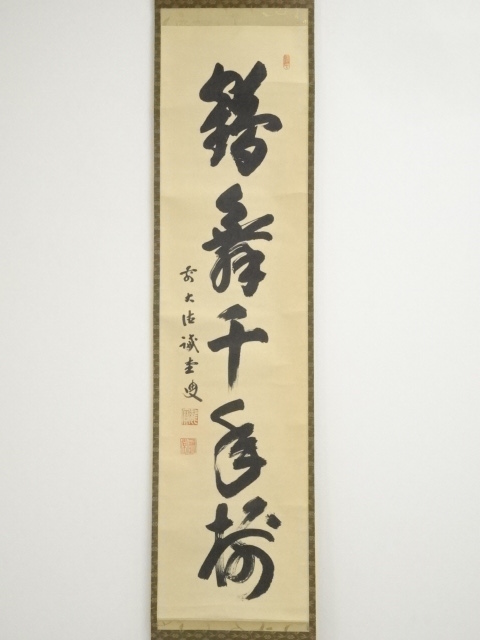 鶴舞千年樹
前大徳誡堂叟